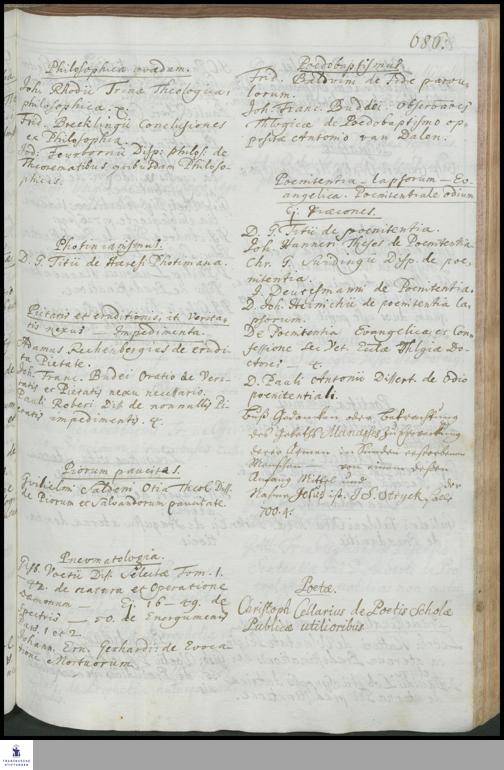 686.
Philosophica quædam.
Joh. Rhodii Trina Theologica,
philosophica. &.
Frid. Breeklingii Conclusiones
ex Philosophia.
Disp: philos: de
Theorematibus quibusdam Philoso-
phicis.
Photinianismus.
D. G. Titii de Hæresi Photiniana.
Pietatis et eruditionis, it. Verita-
tis nexus — Impedimenta.
Adamus Rechenbergius de erudi-
ta Pietate.
Joh. Franc. Budei Oratio de Veri-
tatis et Pietatis nexu necessario.
Pauli Roberi Disp. de nonnullis Pi-
etatis impedimentis. &.
Piorum paucitas.
Guilielmi Saldeni Otia Theol. Diss.
de Piorum et Salvandorum paucitate.
Pnevmatologia.
Gisb. Voetii Disp. Selectæ Tom. 1.
— 42. de natura et Operatione
Dæmonum — 16 — 49. de
Spectris — 50. de Energumenis
Pars. 1 et 2.
Johann. Ern. Gerhardi: de Evoca-
tione Mortuorum.
Pœdobaptismus.
Frid. Balduini de Fide parvu-
lorum.
Joh. Franc. Buddei observationes
Theologicæ de Pœdobaptismo op-
positæ Antonio van Dalen.
Pœnitentia — lapsorum — Ev-
angelica. Pœnitentiale odium
Ej. Præcones.
D. G. Titii de pœnitentia.
Joh. Hanneri Theses de Pœnitentia.
Chr. G. Sundingii Disp. de pœ-
nitentia.
J. Deutschmanni de Pœnitentia.
D. Joh. Heinichii de pœnitentia la-
psorum.
De Pœnitentia Evangelica et Con-
fessione Sec. Vet. Doc-
tores — &.
D. Pauli Antonii Dissert. de Odio
pœnitentiali.
Gedancken oder Betrachtung
des Gebeths Manasses
derer Armen in Sünden
Menschen — von einem dessen
Anfang Mittel und der
Nahme Jesus ist. J. S. Stryck,
700. 4.
Poëtæ.
Christoph Cellarius de Poëtis Scholæ
Publicæ utilioribus.